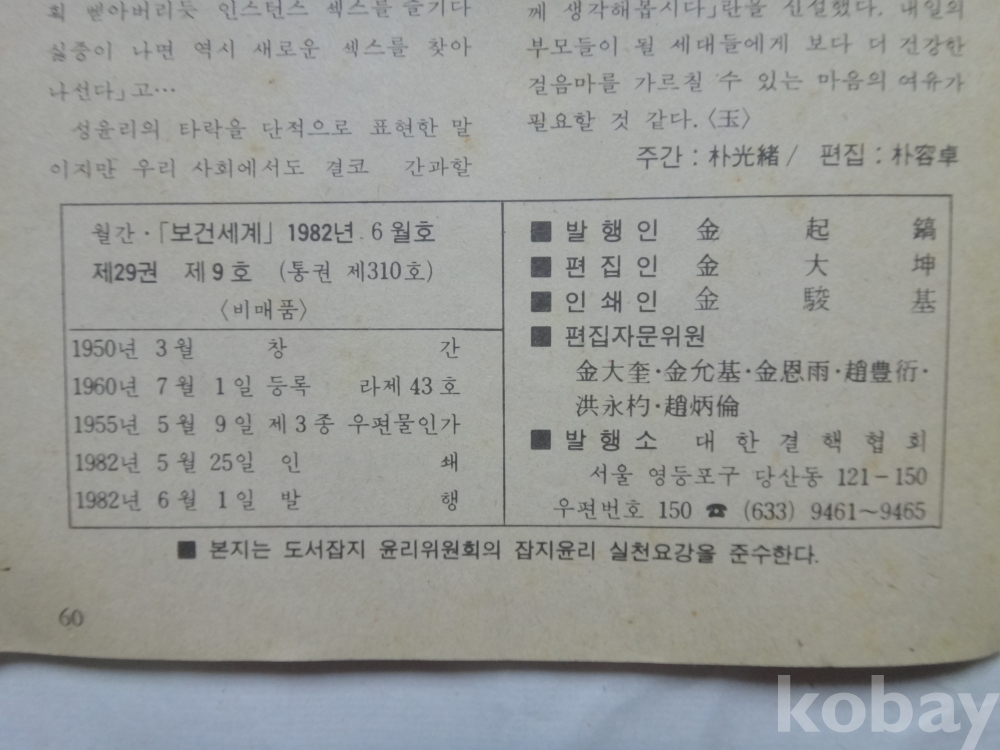 획 뱉아버리듯 인스턴스 섹스를 즐기다
싫증이 나면 역시 새로운 섹스를 찾아
나선다」고…
성윤리의 타락을 단적으로 표현한 말
이지만 우리 사회에서도 결코 간과할
께 생각해봅시다」란을 신설했다. 내일의
부모들이 될 세대들에게 보다 더 건강한
걸음마를 가르칠 수 있는 마음의 여유가
필요할 것 같다.〈玉〉
주간 : 朴光緖 / 편집 : 朴容卓
월간·「보건세계」 1982년 6월호
제29권 제9호 (통권 제310호)
〈비매품〉
1950년 3월 창 간
1960년 7월 1일 등록 라제43호
1955년 5월 9일 제3종 우편물인가
1982년 5월 25일 인 쇄
1982년 6월 1일 발 행
■ 발행인 金起鎬
■ 편집인 金大坤
■ 인쇄인 金駿基
■ 편집자문위원
金大奎·金允基·金恩雨·趙豊衍·
洪永杓·趙炳倫
■ 발행소 대한결핵협회
서울 영등포구 당산동 121-150
우편번호 150 ☎ (633) 9461~9465
■ 본지는 도서잡지 윤리위원회의 잡지윤리 실천요강을 준수한다.
60
kobay